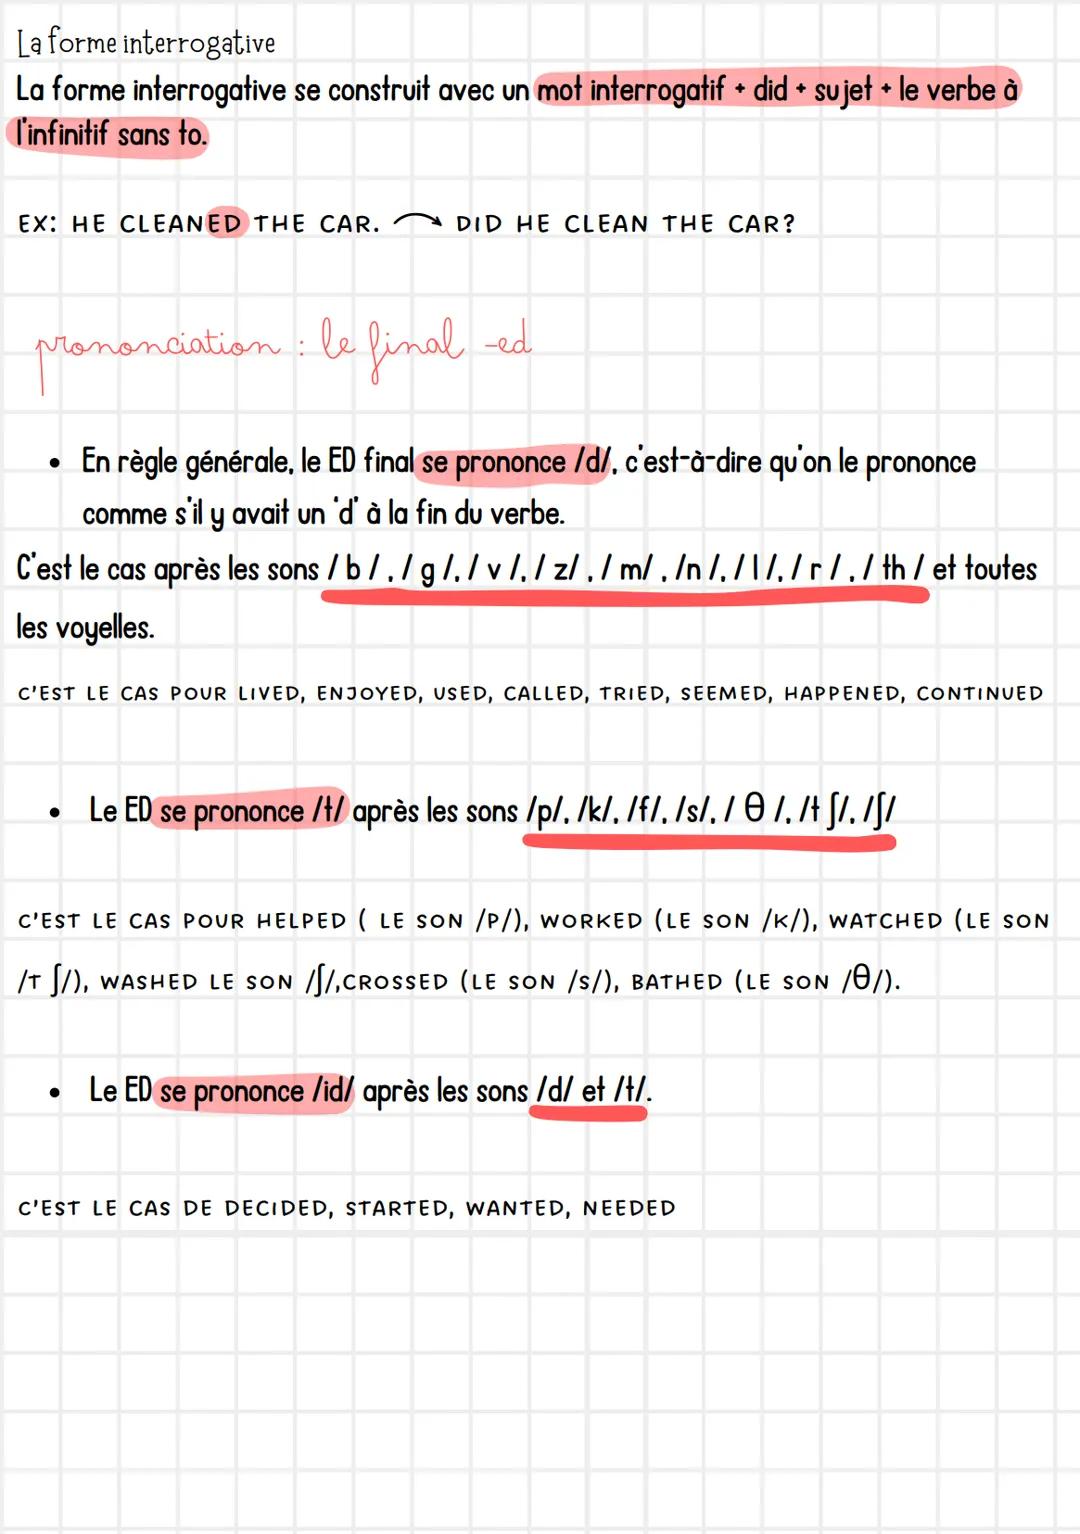 La forme interrogative
La forme interrogative se construit avec un mot interrogatif + did + sujet + le verbe à
l'infinitif sans to.
EX: HE CLEANED THE CAR. → DID HE CLEAN THE CAR?
prononciation : le final -ed
• En règle générale, le ED final se prononce /d/, c'est-à-dire qu'on le prononce
comme s'il y avait un 'd' à la fin du verbe.
C'est le cas après les sons / b / , / g /, / v /, / z/ , / m/ , /n /, / l /, / r / , / th / et toutes
les voyelles.
C'EST LE CAS POUR LIVED, ENJOYED, USED, CALLED, TRIED, SEEMED, HAPPENED, CONTINUED
• Le ED se prononce /t/ après les sons /p/, /k/, /f/, /s/, / θ /, /t ʃ/, /ʃ/
C'EST LE CAS POUR HELPED ( LE SON /P/), WORKED (LE SON /K/), WATCHED (LE SON
/T ʃ/), WASHED LE SON /ʃ/,CROSSED (LE SON /S/), BATHED (LE SON /θ/).
• Le ED se prononce /id/ après les sons /d/ et /t/.
C'EST LE CAS DE DECIDED, STARTED, WANTED, NEEDED